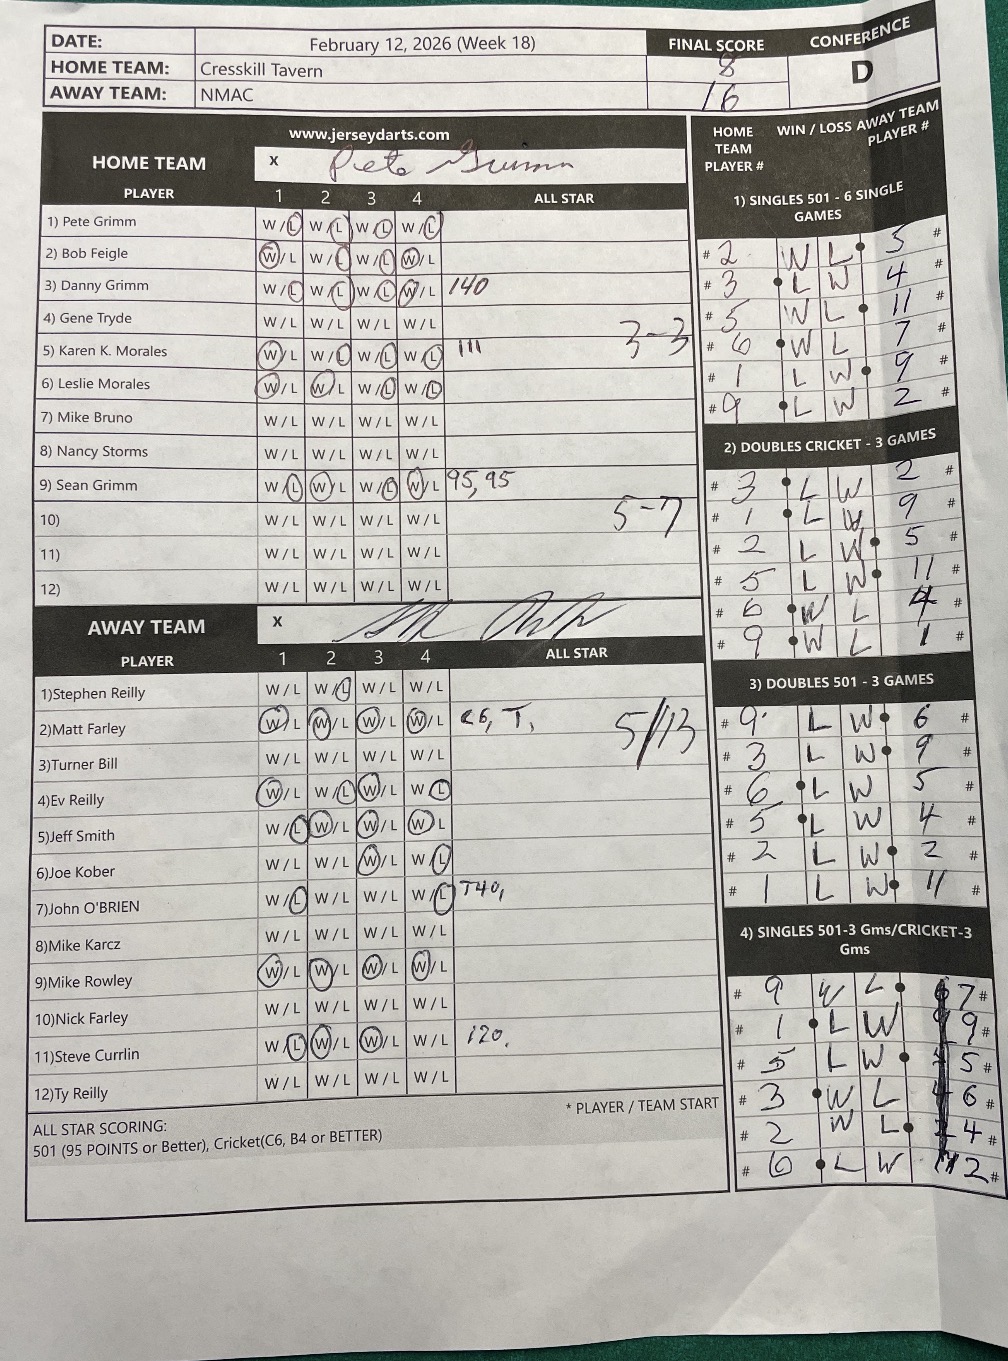 DATE: February 12, 2026 (Week 18) FINAL SCORE CONFERENCE
HOME TEAM: Cresskill Tavern 8 D
AWAY TEAM: NMAC 16
www.jerseydarts.com
HOME TEAM X Pete Grimm
PLAYER 1 2 3 4 ALL STAR
1) Pete Grimm W/L W/L W/L W/L
2) Bob Feigle W/L W/L W/L W/L
3) Danny Grimm W/L W/L W/L W/L 140
4) Gene Tryde W/L W/L W/L W/L 3-3
5) Karen K. Morales W/L W/L W/L W/L 111
6) Leslie Morales W/L W/L W/L W/L
7) Mike Bruno W/L W/L W/L W/L
8) Nancy Storms W/L W/L W/L W/L
9) Sean Grimm W/L W/L W/L W/L 95, 95
10) W/L W/L W/L W/L 5-7
11) W/L W/L W/L W/L
12) W/L W/L W/L W/L
AWAY TEAM X
PLAYER 1 2 3 4 ALL STAR
1)Stephen Reilly W/L W/L W/L W/L
2)Matt Farley W/L W/L W/L W/L C6, T, 5/13
3)Turner Bill W/L W/L W/L W/L
4)Ev Reilly W/L W/L W/L W/L
5)Jeff Smith W/L W/L W/L W/L
6)Joe Kober W/L W/L W/L W/L
7)John O'BRIEN W/L W/L W/L W/L T40,
8)Mike Karcz W/L W/L W/L W/L
9)Mike Rowley W/L W/L W/L W/L
10)Nick Farley W/L W/L W/L W/L
11)Steve Currlin W/L W/L W/L W/L 120,
12)Ty Reilly W/L W/L W/L W/L
* PLAYER / TEAM START
ALL STAR SCORING:
501 (95 POINTS or Better), Cricket(C6, B4 or BETTER)
HOME TEAM PLAYER # WIN / LOSS AWAY TEAM PLAYER #
1) SINGLES 501 - 6 SINGLE
GAMES
# 2 W L 3 #
# 3 L W 4 #
# 5 W L 11 #
# 6 W L 7 #
# 1 L W 9 #
# 9 L W 2 #
2) DOUBLES CRICKET - 3 GAMES
# 3 L W 2 #
# 1 L W 9 #
# 2 L W 5 #
# 5 L W 11 #
# 6 W L 4 #
# 9 W L 1 #
3) DOUBLES 501 - 3 GAMES
# 9 L W 6 #
# 3 L W 9 #
# 6 L W 5 #
# 5 L W 4 #
# 2 L W 2 #
# 1 L W 11 #
4) SINGLES 501-3 Gms/CRICKET-3
Gms
# 9 W L 7 #
# 1 L W 9 #
# 5 L W 5 #
# 3 W L 6 #
# 2 W L 4 #
# 6 L W 2 #